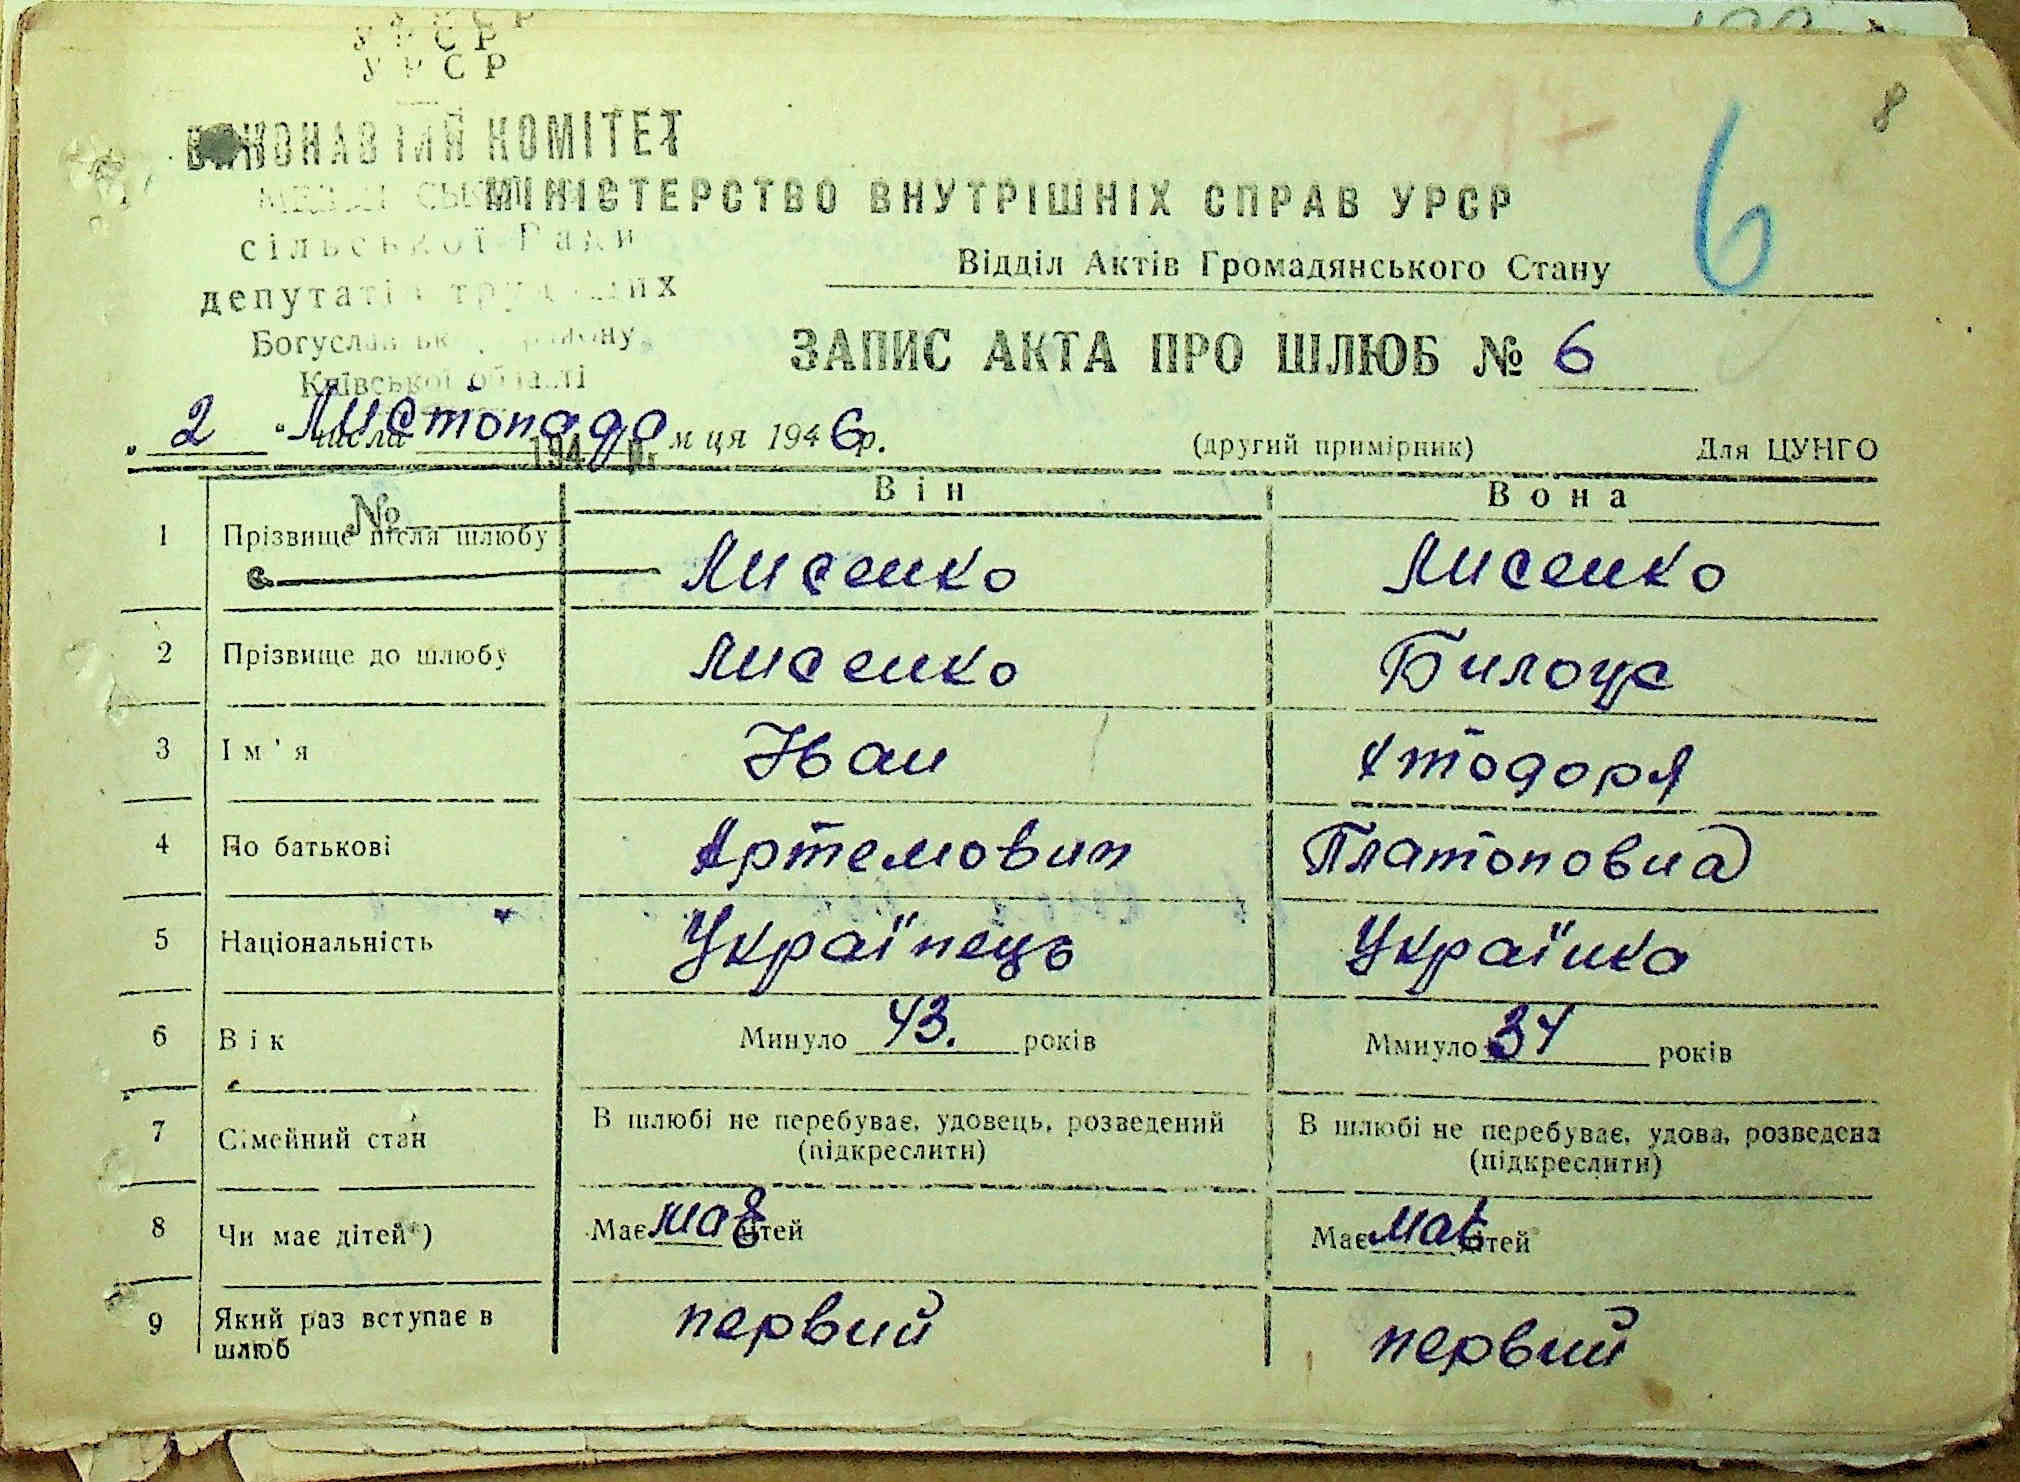 УРСР
УРСР
8
ВИКОНАВЧИЙ КОМІТЕТ
6
МІНІСТЕРСТВО ВНУТРІШНІХ СПРАВ УРСР
сільської Ради
Відділ Актів Громадянського Стану
депутатів трудящих
Богуславського району
ЗАПИС АКТА ПРО ШЛЮБ № 6
Київської області
„ 2 " числа Листопада м ця 1946р.
194 р.
(другий примірник) Для ЦУНГО
Він Вона
№
1 Прізвище після шлюбу Лисенко Лисенко
с.
2 Прізвище до шлюбу Лисенко Билоус
3 Ім'я Іван Хтодоря
4 По батькові Артемович Платоновна
5 Національність Українець Українка
6 Вік Минуло 43. років Ммнуло 34 років
7 Сімейний стан В шлюбі не перебуває, удовець, розведений В шлюбі не перебуває, удова, розведена
(підкреслити) (підкреслити)
8 Чи має дітей*) Має має дітей Має має дітей
9 Який раз вступає в первий первий
шлюб